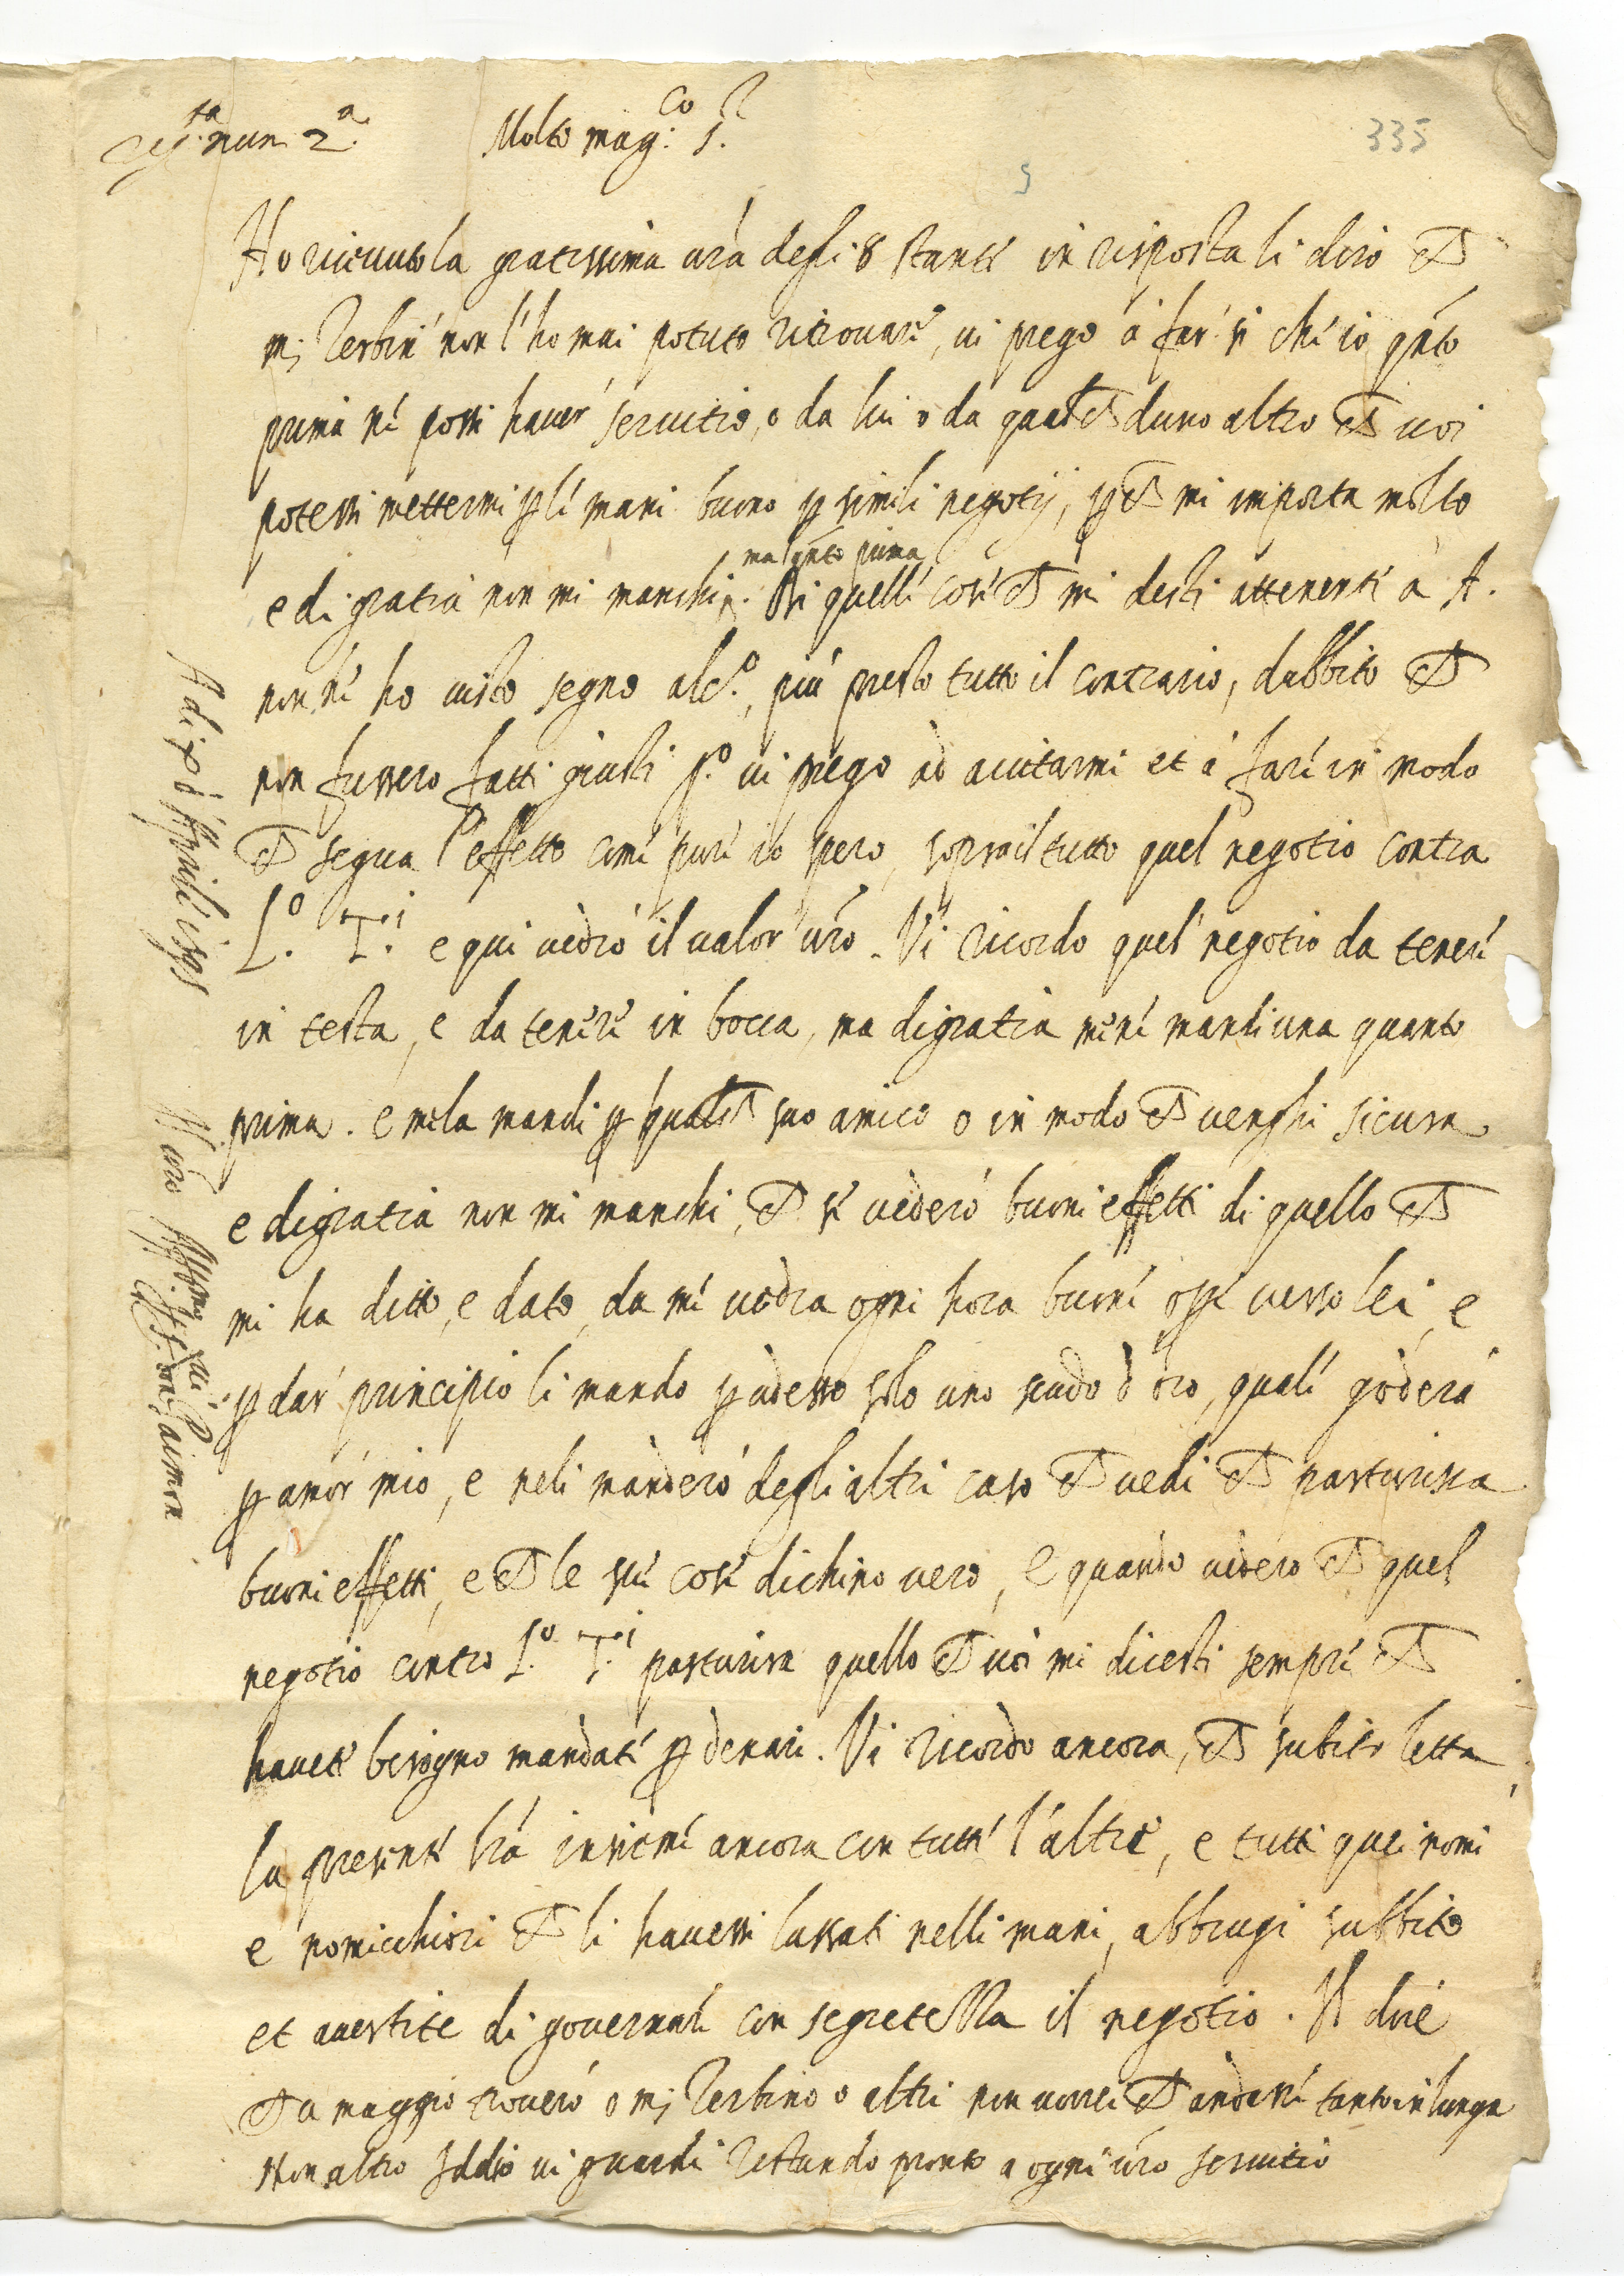 335
Molto mag.co S.r
Ho ricevuto la gratissima vra degli 8 stante in risposta li dirò ch
ms Terbin non l'ho mai potuto ritrovare, vi prego à far si che io qnto
prima ne possi haver servitio, o da lui o da qualch duno altro ch voi
potessi mettermi p le mani buono p simili negotij, p ch mi importa molto
e di gratia non mi manchi ma qnto prima. Di quelle cose ch mi desti attenenti à A.
non ne ho visto segno alc.o, più presto tutto il contrario, dubbito ch
non fussero fatti giusti p.o vi prego ad aiutarmi et à fare in modo
ch segua l'effetto come pure io spero, sopra il tutto quel negotio contra
L.o T.i e qui vedrò il valor vro. Vi ricordo quel negotio da tenere
in testa, e da tenere in bocca, ma di gratia me ne mandi una quanto
prima. e me la mandi p qualch suo amico o in modo ch venghi sicura
e di gratia non mi manchi, ch se vederò buoni effetti di quello ch
mi ha ditto, e dato, da me vedra ogni hora buone opre verso lei, e
p dar principio li mando p adesso solo uno scudo d oro, quale goderà
p amor mio, e neli manderò degli altri caso ch vedi ch parturisca
buoni effetti, e ch le sue cose dichino vero, e quando vedero ch quel
negotio contro L.o T.i parturisca quello ch voi mi dicesti sempre ch
havete bisogno mandate p denari. Vi ricordo ancora, ch subito letta
la presente insieme ancora con tutte l'altre, e tutti quei nomi
e nomicchiori ch li havessi lassati nelle mani, abbrugi subbito
et avertite di governare con segretezza il negotio. Il dire
ch a maggio troverò o ms Terbino o altri non vorrei ch andasse tanto in lunga
Non altro Iddio vi guardi restando pronto a ogni vro servitio
Di vro
Adi p.o d'Aprile 1595